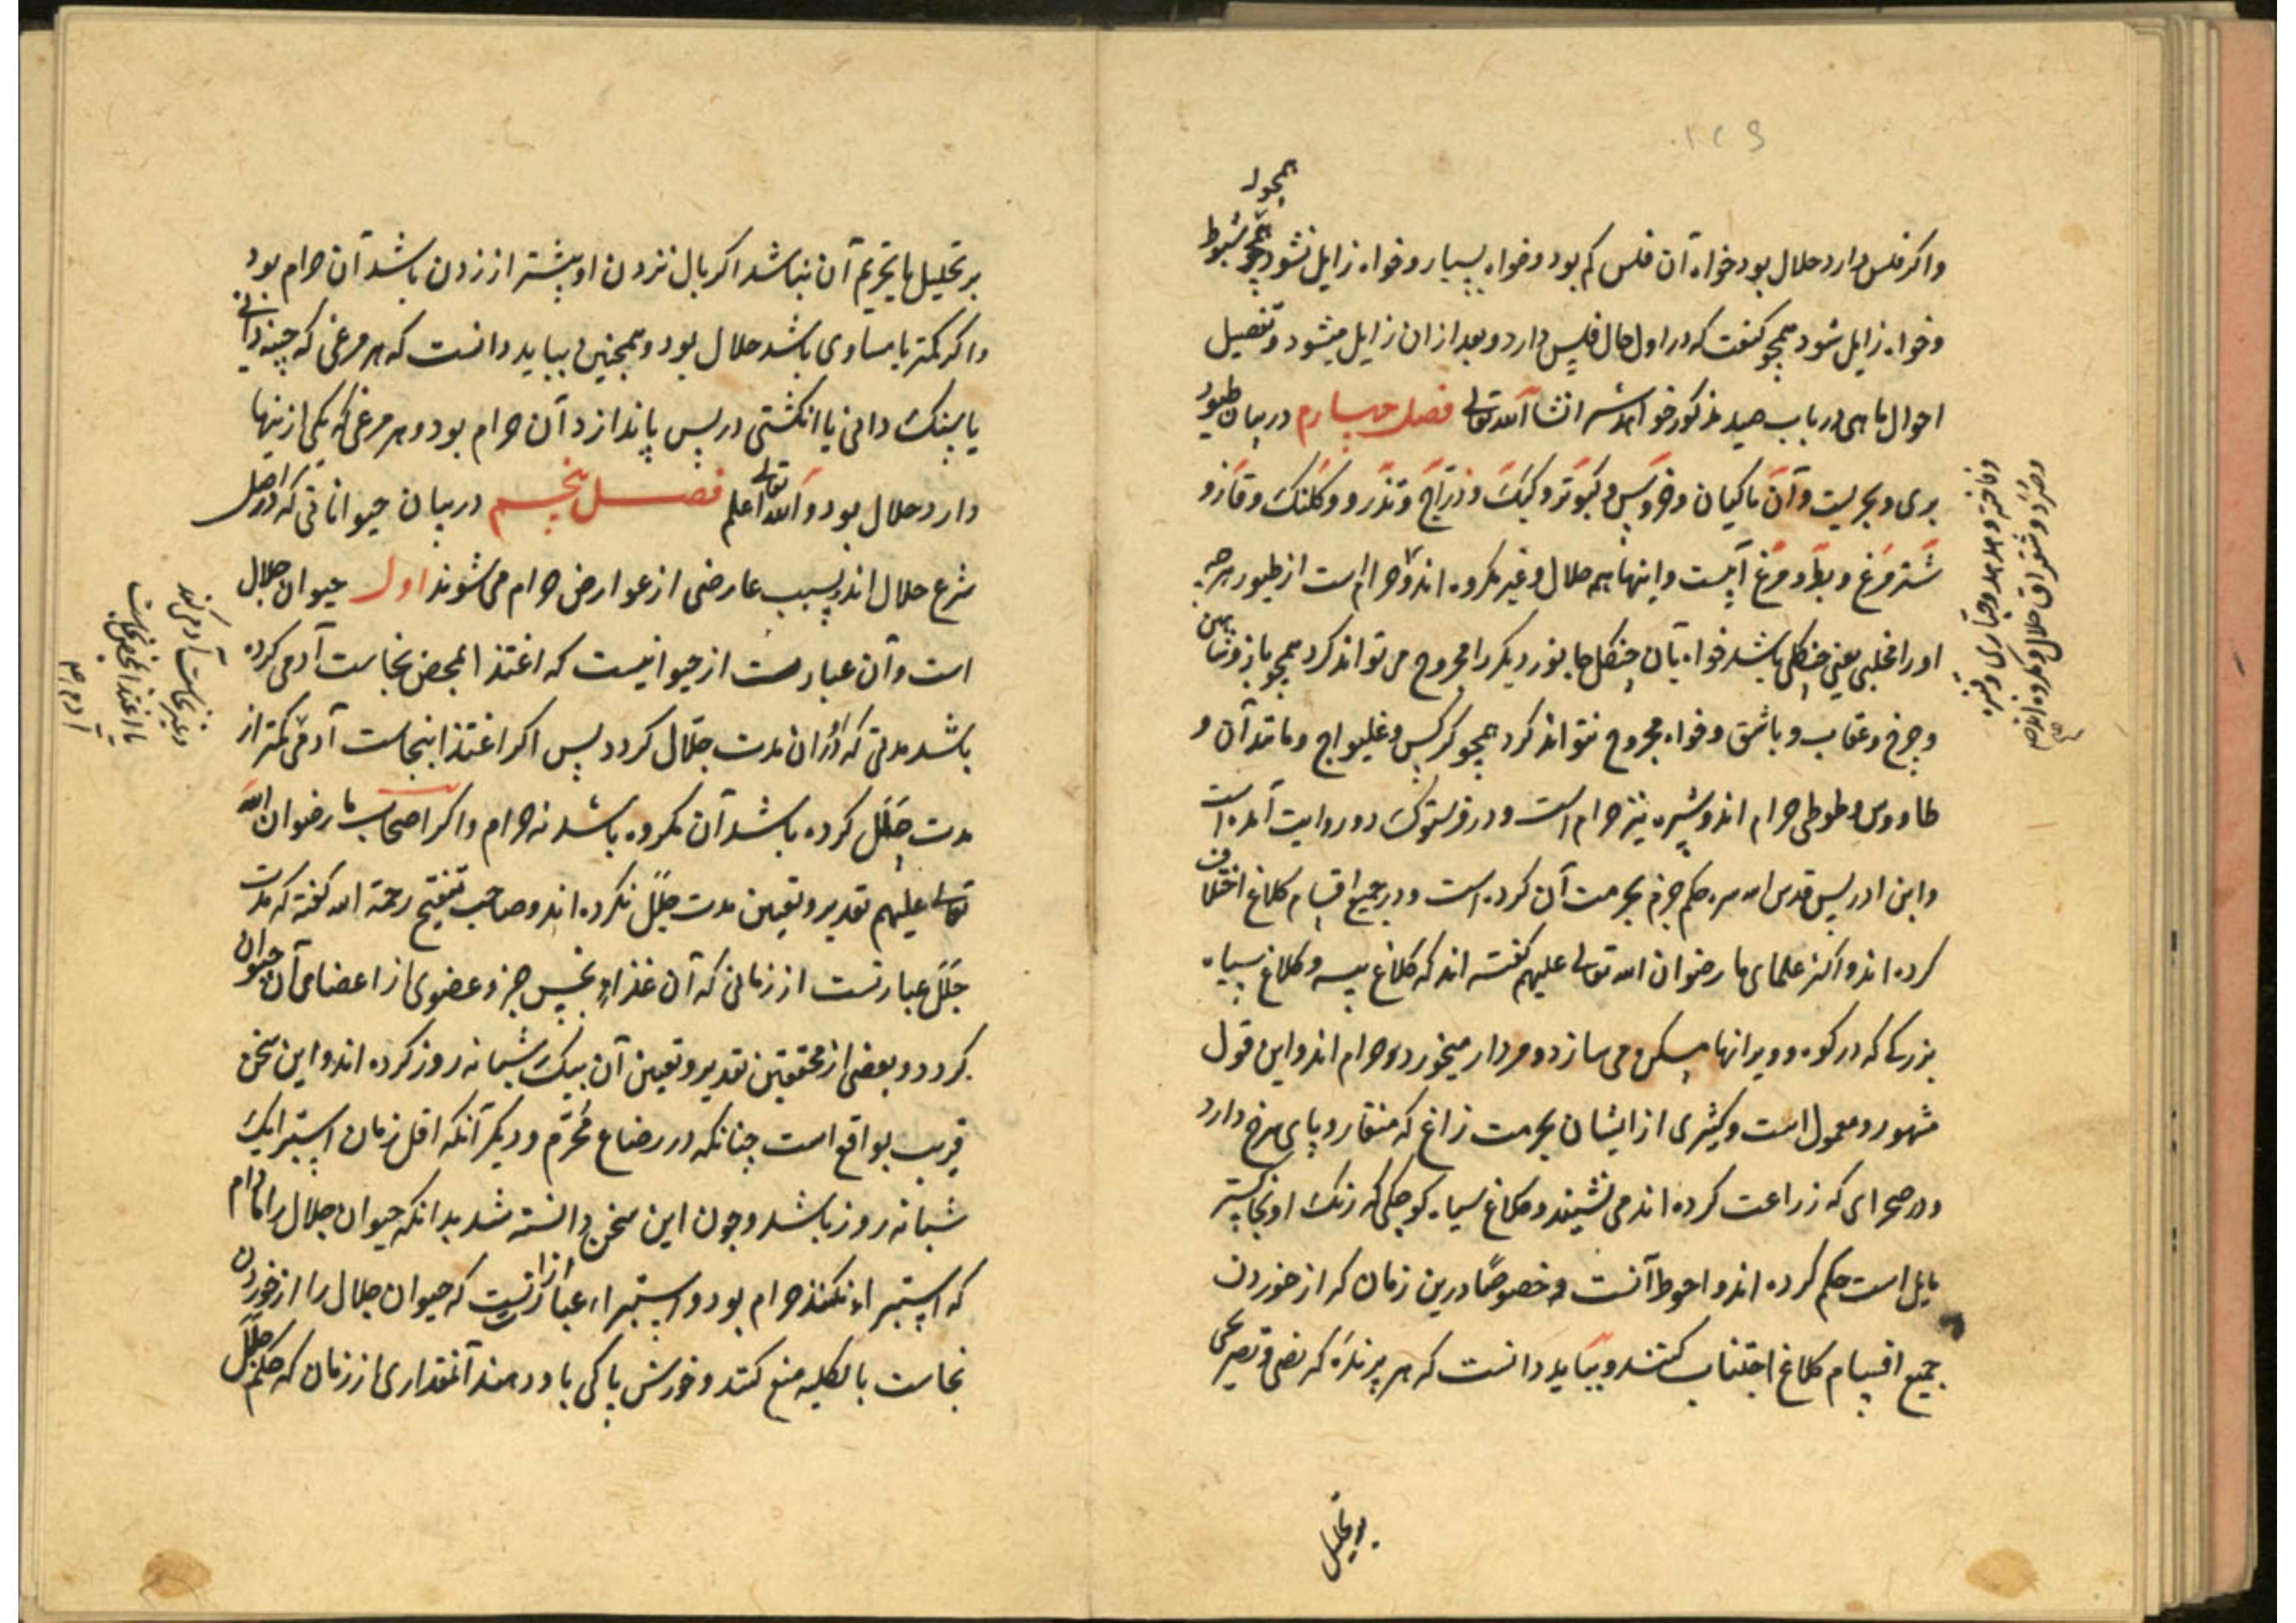 ۱۲۹
همچو
واکر فلس دارد حلال بود خواه آن فلس کم بود و خواه بسیار و خواه زایل نشود همچو شبوط
و خواه زایل شود همچو کنعت که در اول حال فلس دارد و بعد از ان زایل میشود و تفصیل
احوال ماهی در باب صید مذکور خواهد شد انشا الله تعالی فصل چهارم در بیان طیور
بری و بحریست و آن ماکیان و خروس و کبوتر و کبک و دراج و تذرو و کلنک و قاز و
شتر مرغ و بط و مرغ آبیست و اینها همه حلال و غیر مکروه اند و حرام است از طیور هرچه
او را مخلبی یعنی چنکلی باشد خواه بآن چنکل جانور دیکر را مجروح می تواند کرد همچو باز و شاهین
و چرغ و عقاب و باشق و خواه مجروح نتواند کرد همچو کرکس و غلیواج و مانند آن و
طاووس و طوطی حرام اند و شپره نیز حرام است و در فرستوک دو روایت آمده است
وابن ادریس قدس الله سره حکم جزم بحرمت آن کرده است و در جمیع اقسام کلاغ اختلاف
کرده اند و اکثر علمای ما رضوان الله تعالی علیهم کفته اند که کلاغ پیسه و کلاغ سیاه
بزرکی که در کوه و ویرانها مسکن می سازد و مردار میخورد حرام اند و این قول
مشهور و معمول است و کثیری از ایشان بحرمت زاغ که منقار و پای سرخ دارد
و در صحرای که زراعت کرده اند می نشیند و کلاغ سیاه کوچکی که رنک او بخاکستر
مایل است حکم کرده اند و احوط آنست و خصوصا درین زمان که از خوردن
جمیع اقسام کلاغ اجتناب کنند و بباید دانست که هر پرنده که نصی و تصریحی
بر تحلیل
بر تحلیل یا تحریم آن نباشد اکر بال نزدن او بیشتر از زدن باشد آن حرام بود
و اکر کمتر یا مساوی باشد حلال بود و همچنین بباید دانست که هر مرغی که چینه دانی
یا سنک دانی یا انکشتی در پس پا ندارد آن حرام بود و هر مرغی که یکی از ینها
دارد حلال بود و الله تعالی اعلم فصل پنجم در بیان حیواناتی که در اصل
شرع حلال اند و بسبب عارضی از عوارض حرام می شوند اول حیوان جلال
است و آن عبارت از حیوانیست که اغتذا بمحض نجاست آدمی کرده
باشد مدتی که در ان مدت جلال کردد پس اکر اغتذا بنجاست آدمی کمتر از
مدت جلل کرده باشد آن مکروه باشد نه حرام و اکر اصحاب ما رضوان الله
تعالی علیهم تقدیر و تعین مدت جلل نکرده اند و صاحب تنقیح رحمة الله کفته که مدت
جلل عبارتست از زمانی که آن غذاء نجس جزو عضوی از اعضای آن حیوان
کردد و بعضی از محققین تقدیر و تعین آن بیک شبانه روز کرده اند و این سخن
قریب بواقع است چنانکه در رضاع محرم و دیکر آنکه اقل زمان استبرا یک
شبانه روز باشد و چون این سخن دانسته شد بدانکه حیوان جلال را مادام
که استبراء نکنند حرام بود و استبراء عبارتست که حیوان جلال را از خوردن
نجاست بالکلیه منع کنند و خورش پاکی باو دهند آنمقداری از زمان که حکم جلل